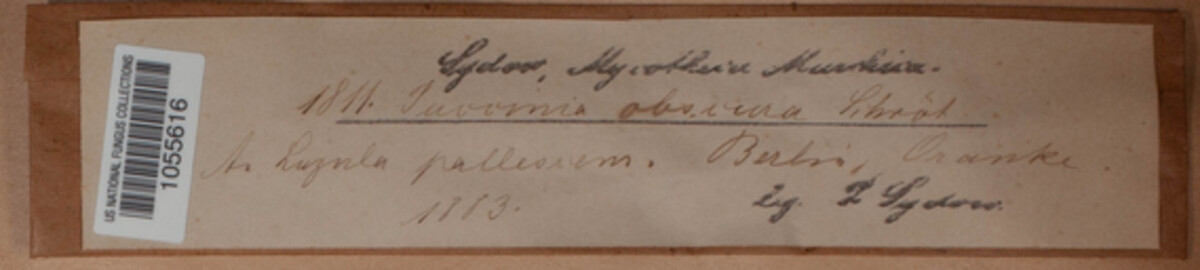 US NATIONAL FUNGUS COLLECTIONS
1055616
Sydow, Mycotheca Marchica.
1811. Puccinia obscura Schröt.
A. Luzula pallescens. Berlin, Oranke
1883.
Lg. P Sydow.